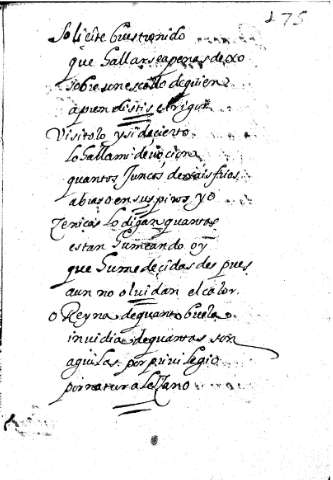 175
Solicite buestro nido
que hallarse apenas dexo
sobre un escollo de quien
aprendistis el rigor
Visitolo y si de cierto
lo halla mi deuocion
quantos Juncos dexais frios
abraso en suspiros yo
cenicas lo digan quantas
estan humeando oy
que humedeçidas despues
aun no oluidan el calor.
o Reyna de quanto buela
inuidia de quantas son
aguilas por priuilegio
por naturaleza no